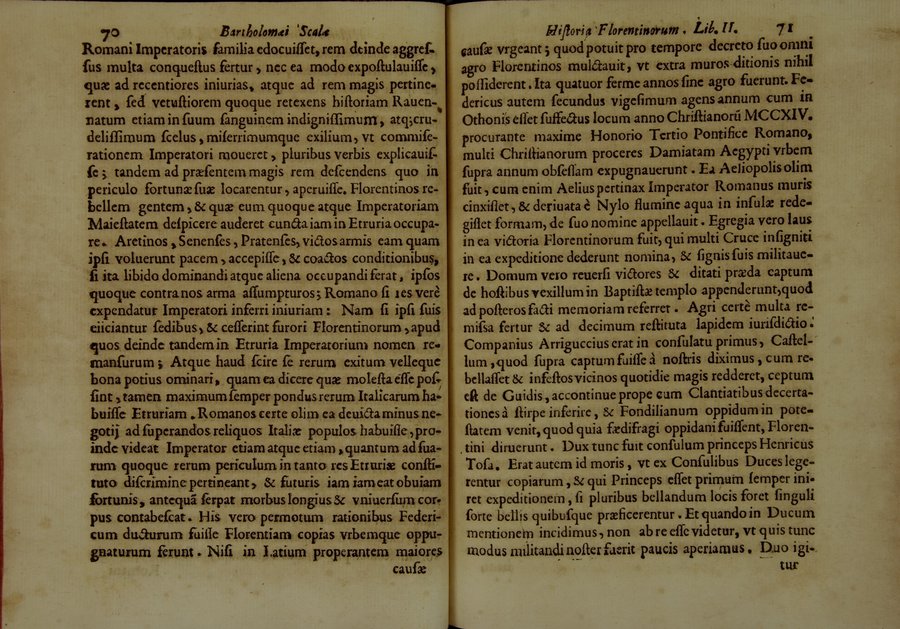 70 Bartholomæi Scalæ
Romani Imperatoris familia edocuiſſet, rem deinde aggreſ-
ſus multa conqueſtus fertur, nec ea modo expoſtulauiſſe,
quæ ad recentiores iniurias, atque ad rem magis pertine-
rent, ſed vetuſtiorem quoque retexens hiſtoriam Rauen-
natum etiam in ſuum ſanguinem indigniſſimum, atq; cru-
deliſſimum ſcelus, miſerrimumque exilium, vt commiſe-
rationem Imperatori moueret, pluribus verbis explicauiſ-
ſe; tandem ad præſentem magis rem deſcendens quo in
periculo fortunæ ſuæ locarentur, aperuiſſe. Florentinos re-
bellem gentem, & quæ eum quoque atque Imperatoriam
Maieſtatem deſpicere auderet cuncta iam in Etruria occupa-
re. Aretinos, Senenſes, Pratenſes, victos armis eam quam
ipſi voluerunt pacem, accepiſſe, & coactos conditionibus,
ſi ita libido dominandi atque aliena occupandi ferat, ipſos
quoque contra nos arma aſſumpturos; Romano ſi res verè
expendatur Imperatori inferri iniuriam: Nam ſi ipſi ſuis
eiiciantur ſedibus, & ceſſerint furori Florentinorum, apud
quos deinde tandem in Etruria Imperatorium nomen re-
manſurum; Atque haud ſcire ſe rerum exitum velleque
bona potius ominari, quam ea dicere quæ moleſta eſſe poſ-
ſint, tamen maximum ſemper pondus rerum Italicarum ha-
buiſſe Etruriam. Romanos certe olim ea deuicta minus ne-
gotij ad ſuperandos reliquos Italiæ populos habuiſſe, pro-
inde videat Imperator etiam atque etiam, quantum ad ſua-
rum quoque rerum periculum in tanto res Etruriæ conſti-
tuto diſcrimine pertineant, & futuris iam iam eat obuiam
fortunis, antequã ſerpat morbus longius & vniuerſum cor-
pus contabeſcat. His vero permotum rationibus Federi-
cum ducturum fuiſſe Florentiam copias vrbemque oppu-
gnaturum ferunt. Niſi in Latium properantem maiores
cauſæ
Hiſtoria Florentinorum. Lib. II. 71
cauſæ vrgeant; quod potuit pro tempore decreto ſuo omni
agro Florentinos mulctauit, vt extra muros ditionis nihil
poſſiderent. Ita quatuor ferme annos ſine agro fuerunt. Fe-
dericus autem ſecundus vigeſimum agens annum cum in
Othonis eſſet ſuffectus locum anno Chriſtianorũ MCCXIV.
procurante maxime Honorio Tertio Pontifice Romano,
multi Chriſtianorum proceres Damiatam Aegypti vrbem
ſupra annum obſeſſam expugnauerunt. Ea Aeliopolis olim
fuit, cum enim Aelius pertinax Imperator Romanus muris
cinxiſſet, & deriuata è Nylo flumine aqua in inſulæ rede-
giſſet formam, de ſuo nomine appellauit. Egregia vero laus
in ea victoria Florentinorum fuit, qui multi Cruce inſigniti
in ea expeditione dederunt nomina, & ſignis ſuis militaue-
re. Domum vero reuerſi victores & ditati præda captum
de hoſtibus vexillum in Baptiſtæ templo appenderunt, quod
ad poſteros facti memoriam referret. Agri certè multa re-
miſſa fertur & ad decimum reſtituta lapidem iuriſdictio.
Companius Arriguccius erat in conſulatu primus, Caſtel-
lum, quod ſupra captum fuiſſe à noſtris diximus, cum re-
bellaſſet & infeſtos vicinos quotidie magis redderet, ceptum
eſt de Guidis, ac continue prope cum Clantiatibus decerta-
tiones à ſtirpe inferire, & Fondilianum oppidum in pote-
ſtatem venit, quod quia fædifragi oppidani fuiſſent, Floren-
tini diruerunt. Dux tunc fuit conſulum princeps Henricus
Toſa. Erat autem id moris, vt ex Conſulibus Duces lege-
rentur copiarum, & qui Princeps eſſet primum ſemper ini-
ret expeditionem, ſi pluribus bellandum locis foret ſinguli
ſorte bellis quibuſque præficerentur. Et quando in Ducum
mentionem incidimus, non ab re eſſe videtur, vt quis tunc
modus militandi noſter fuerit paucis aperiamus. Duo igi-
tur